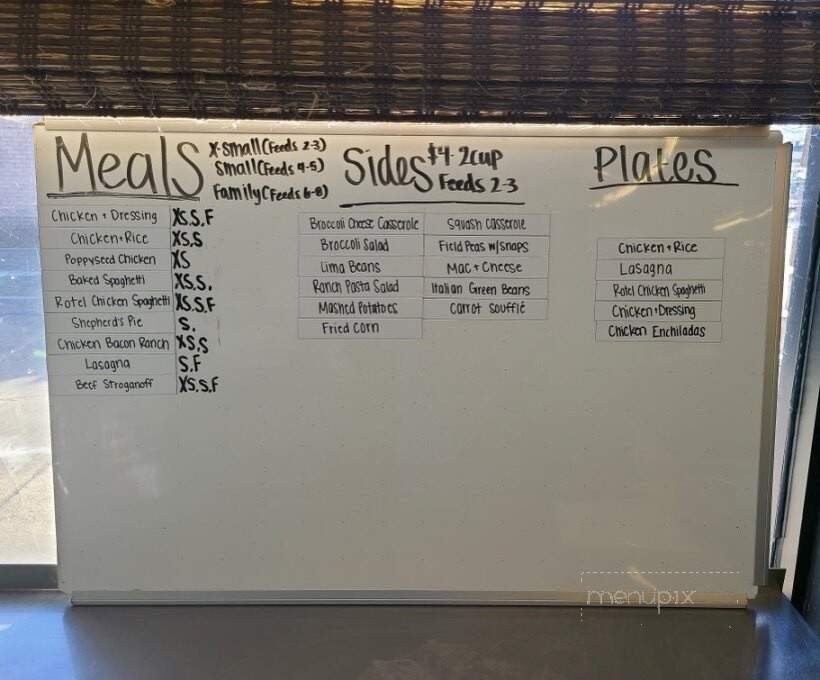 Meals
X-Small (Feeds 2-3)
Small (Feeds 4-5)
Family (Feeds 6-8)
Chicken + Dressing XS,S,F
Chicken + Rice XS,S
Poppyseed Chicken XS
Baked Spaghetti XS,S,
Rotel Chicken Spaghetti XS,S,F
Shepherd's Pie S,
Chicken Bacon Ranch XS,S
Lasagna S,F
Beef Stroganoff XS,S,F
Sides
$4-2cup
Feeds 2-3
Broccoli Cheese Casserole
Broccoli Salad
Lima Beans
Ranch Pasta Salad
Mashed Potatoes
Fried Corn
Squash Casserole
Field Peas w/snaps
Mac + Cheese
Italian Green Beans
Carrot Soufflé
Plates
Chicken + Rice
Lasagna
Rotel Chicken Spaghetti
Chicken + Dressing
Chicken Enchiladas
menupix